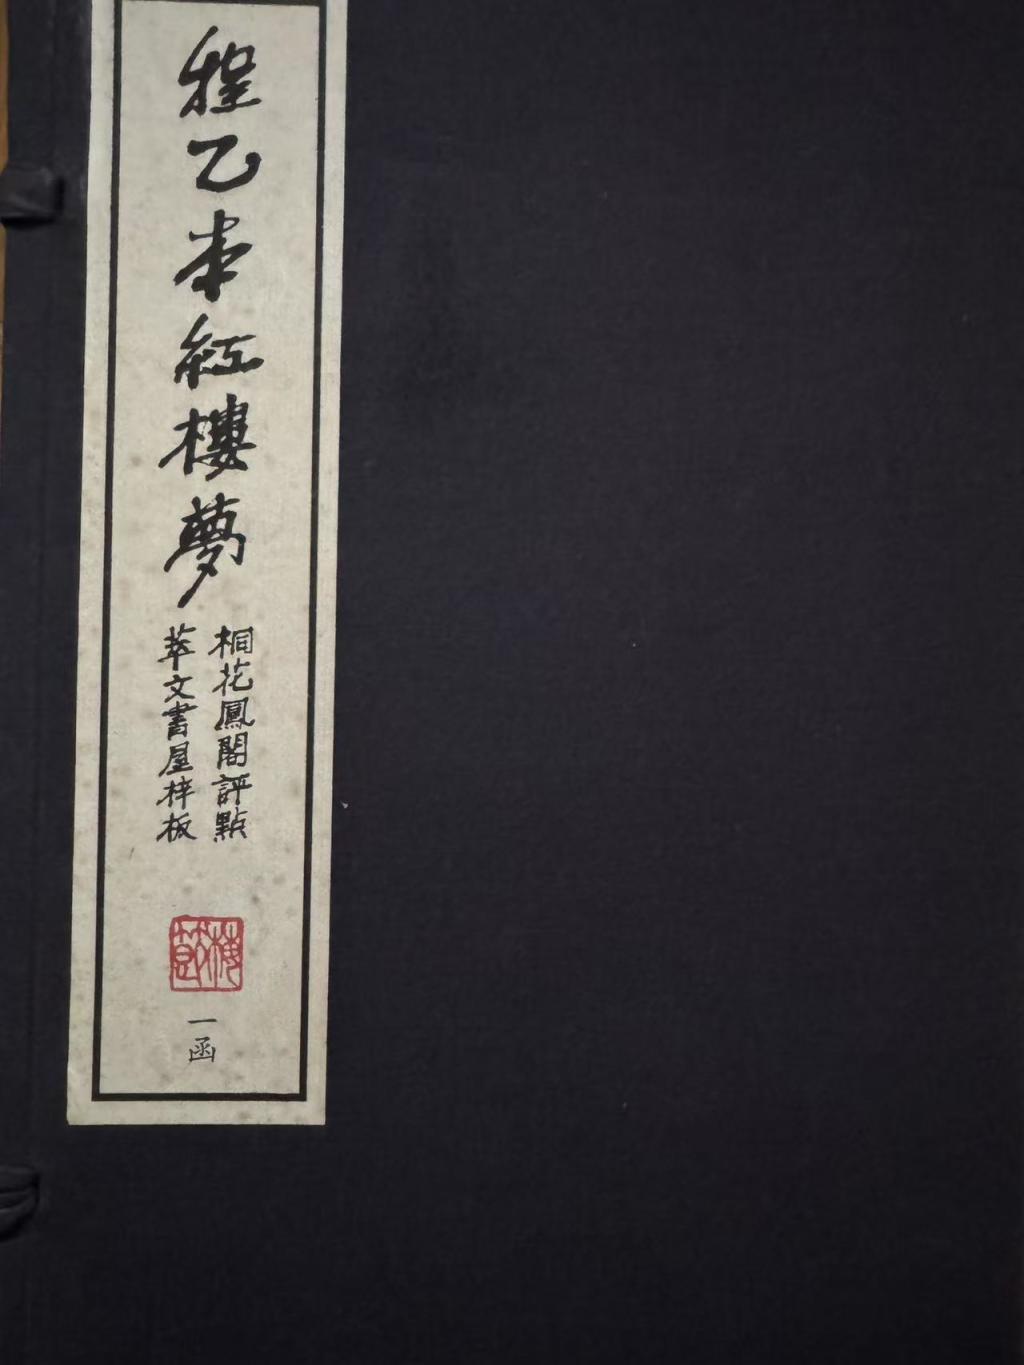 程乙本紅樓夢
桐花鳳閣評點
萃文書屋梓板
一函